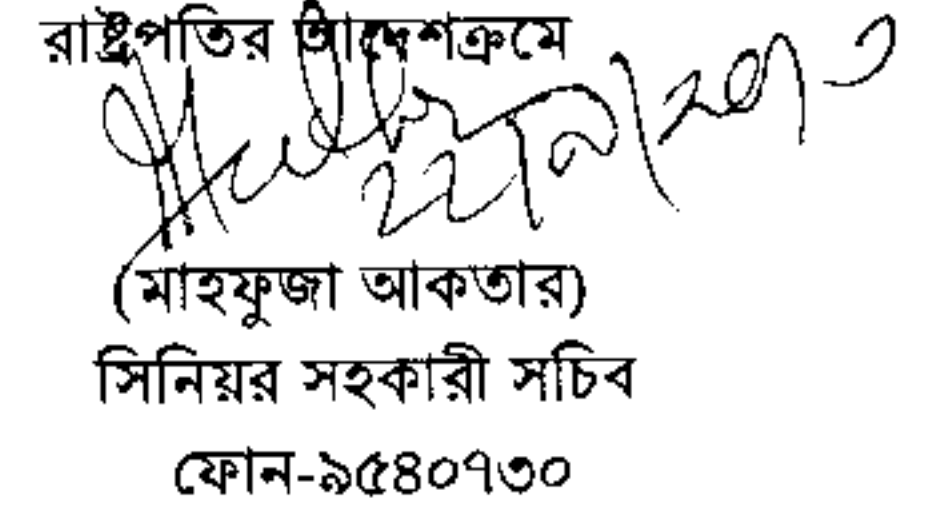 রাষ্ট্রপতির আদেশক্রমে
(মাহফুজা আকতার)
সিনিয়র সহকারী সচিব
ফোন-৯৫৪০৭৩০